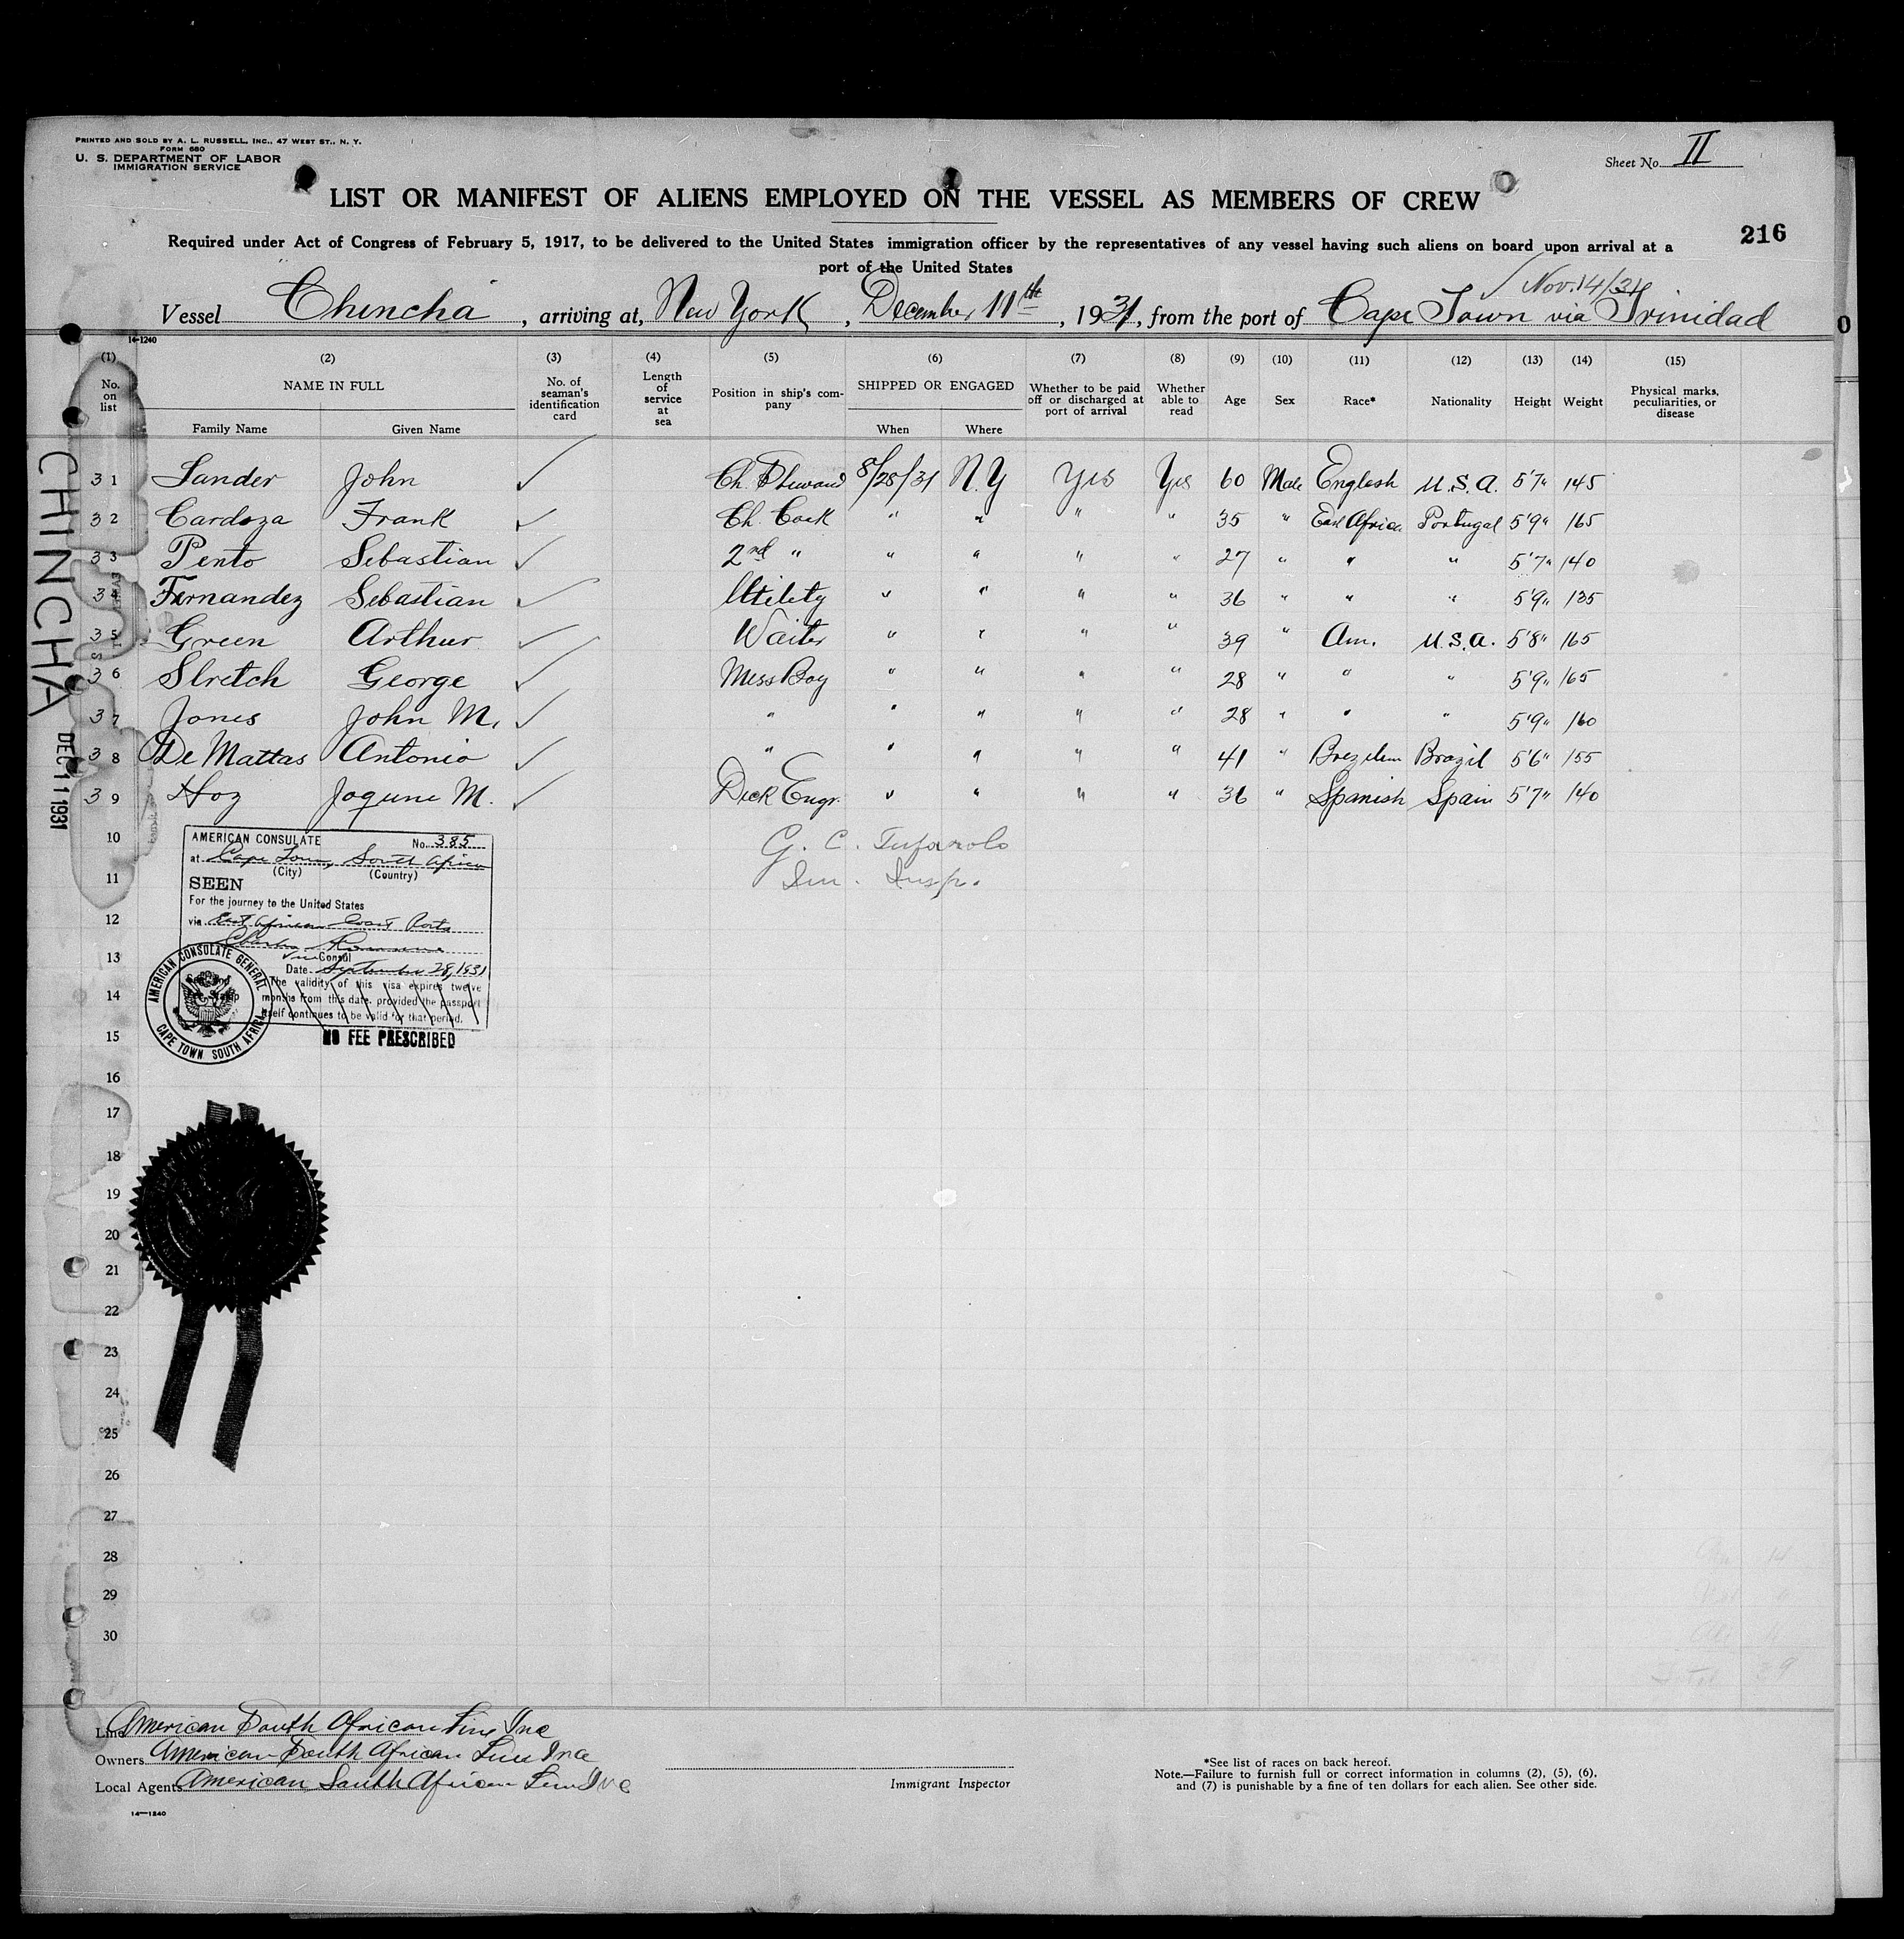 PRINTED AND SOLD BY A. L. RUSSELL, INC., 47 WEST ST., N. Y.
FORM 680
U. S. DEPARTMENT OF LABOR
IMMIGRATION SERVICE
Sheet No. II
LIST OR MANIFEST OF ALIENS EMPLOYED ON THE VESSEL AS MEMBERS OF CREW
216
Required under Act of Congress of February 5, 1917, to be delivered to the United States immigration officer by the representatives of any vessel having such aliens on board upon arrival at a
port of the United States
Nov. 14/31
Vessel Chincha, arriving at, New York, December 11th, 1931, from the port of Cape Town via Trinidad
14-1240
(1) (2) (3) (4) (5) (6) (7) (8) (9) (10) (11) (12) (13) (14) (15)
No. on list NAME IN FULL No. of seaman's identification card Length of service at sea Position in ship's company SHIPPED OR ENGAGED Whether to be paid off or discharged at port of arrival Whether able to read Age Sex Race* Nationality Height Weight Physical marks, peculiarities, or disease
Family Name Given Name When Where
31 Sander John ✓ Ch. Steward 8/28/31 N.Y Yes Yes 60 Male English U.S.A. 5'7" 145
32 Cardoza Frank ✓ Ch. Cook " " " " 35 " East Africa Portugal 5'9" 165
33 Pento Sebastian ✓ 2nd " " " " " 27 " " " 5'7" 140
34 Fernandez Sebastian ✓ Utility " " " " 36 " " " 5'9" 135
35 Green Arthur ✓ Waiter " " " " 39 " Am. U.S.A. 5'8" 165
36 Stretch George ✓ Mess Boy " " " " 28 " " " 5'9" 165
37 Jones John M. ✓ " " " " " 28 " " " 5'9" 160
38 De Mattas Antonio ✓ " " " " " 41 " Brezilem Brazil 5'6" 155
39 Hoz Joqune M. ✓ Deck Engr. " " " " 36 " Spanish Spain 5'7" 140
CHINCHA
DEC 11 1931
10
11
12
13
14
15
16
17
18
19
20
21
22
23
24
25
26
27
28
29
30
G. C. Tufarolo
Im. Insp.
AMERICAN CONSULATE No. 385
at Cape Town, South Africa
(City) (Country)
SEEN
For the journey to the United States
via East African Coast Ports
Vice Consul
Date September 28, 1931
The validity of this visa expires twelve
months from this date, provided the passport
itself continues to be valid for that period.
AMERICAN CONSULATE GENERAL
CAPE TOWN SOUTH AFRICA
NO FEE PRESCRIBED
14
39
Line American South African Line Inc
Owners American South African Line Inc
Local Agents American South African Line Inc
Immigrant Inspector
*See list of races on back hereof.
Note.—Failure to furnish full or correct information in columns (2), (5), (6),
and (7) is punishable by a fine of ten dollars for each alien. See other side.
14—1240